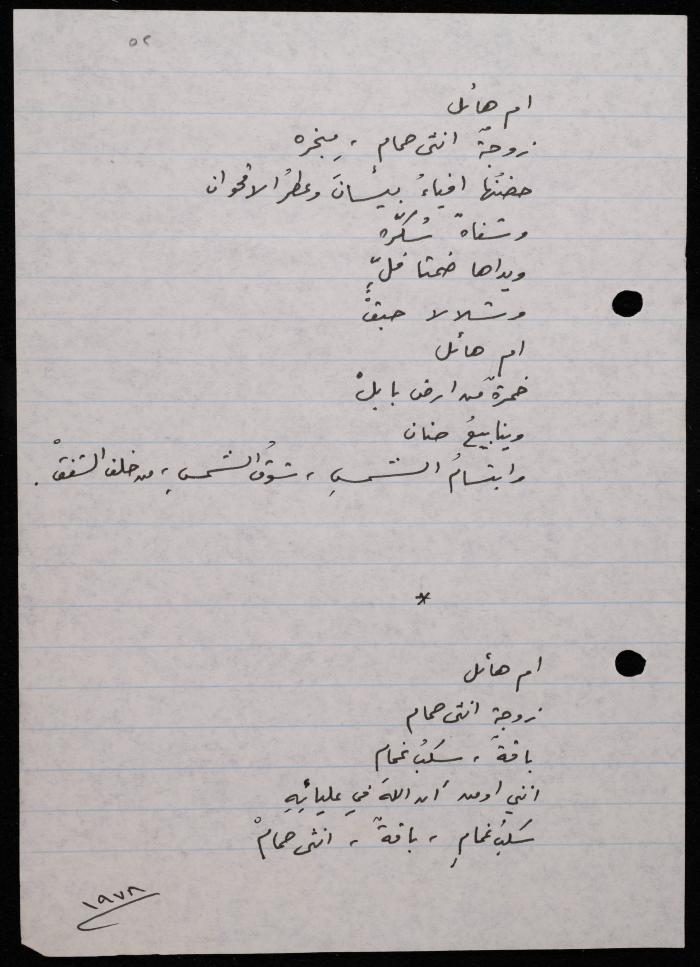 ٥٢
ام هائل
زوجةٌ انثى حمام ، مبخره
حضنُها افياءُ بيسانَ وعطرُ الاقحوان
وشفاهٌ سُكّره
ويداها ضمتا فلٍّ
وشلالا حبقْ
ام هائل
خمرةٌ من ارض بابلْ
وينابيعُ حنان
وابتسامُ الشمسِ ، شوقُ الشمسِ ، من خلف الشفقْ .
*
ام هائل
زوجةٌ انثى حمام
باقةٌ ، سكبُ غمام
انني اومن أن اللهَ في عليائِهِ
سكبُ غمامٍ ، باقةٌ ، انثى حمامْ
١٩٧٨